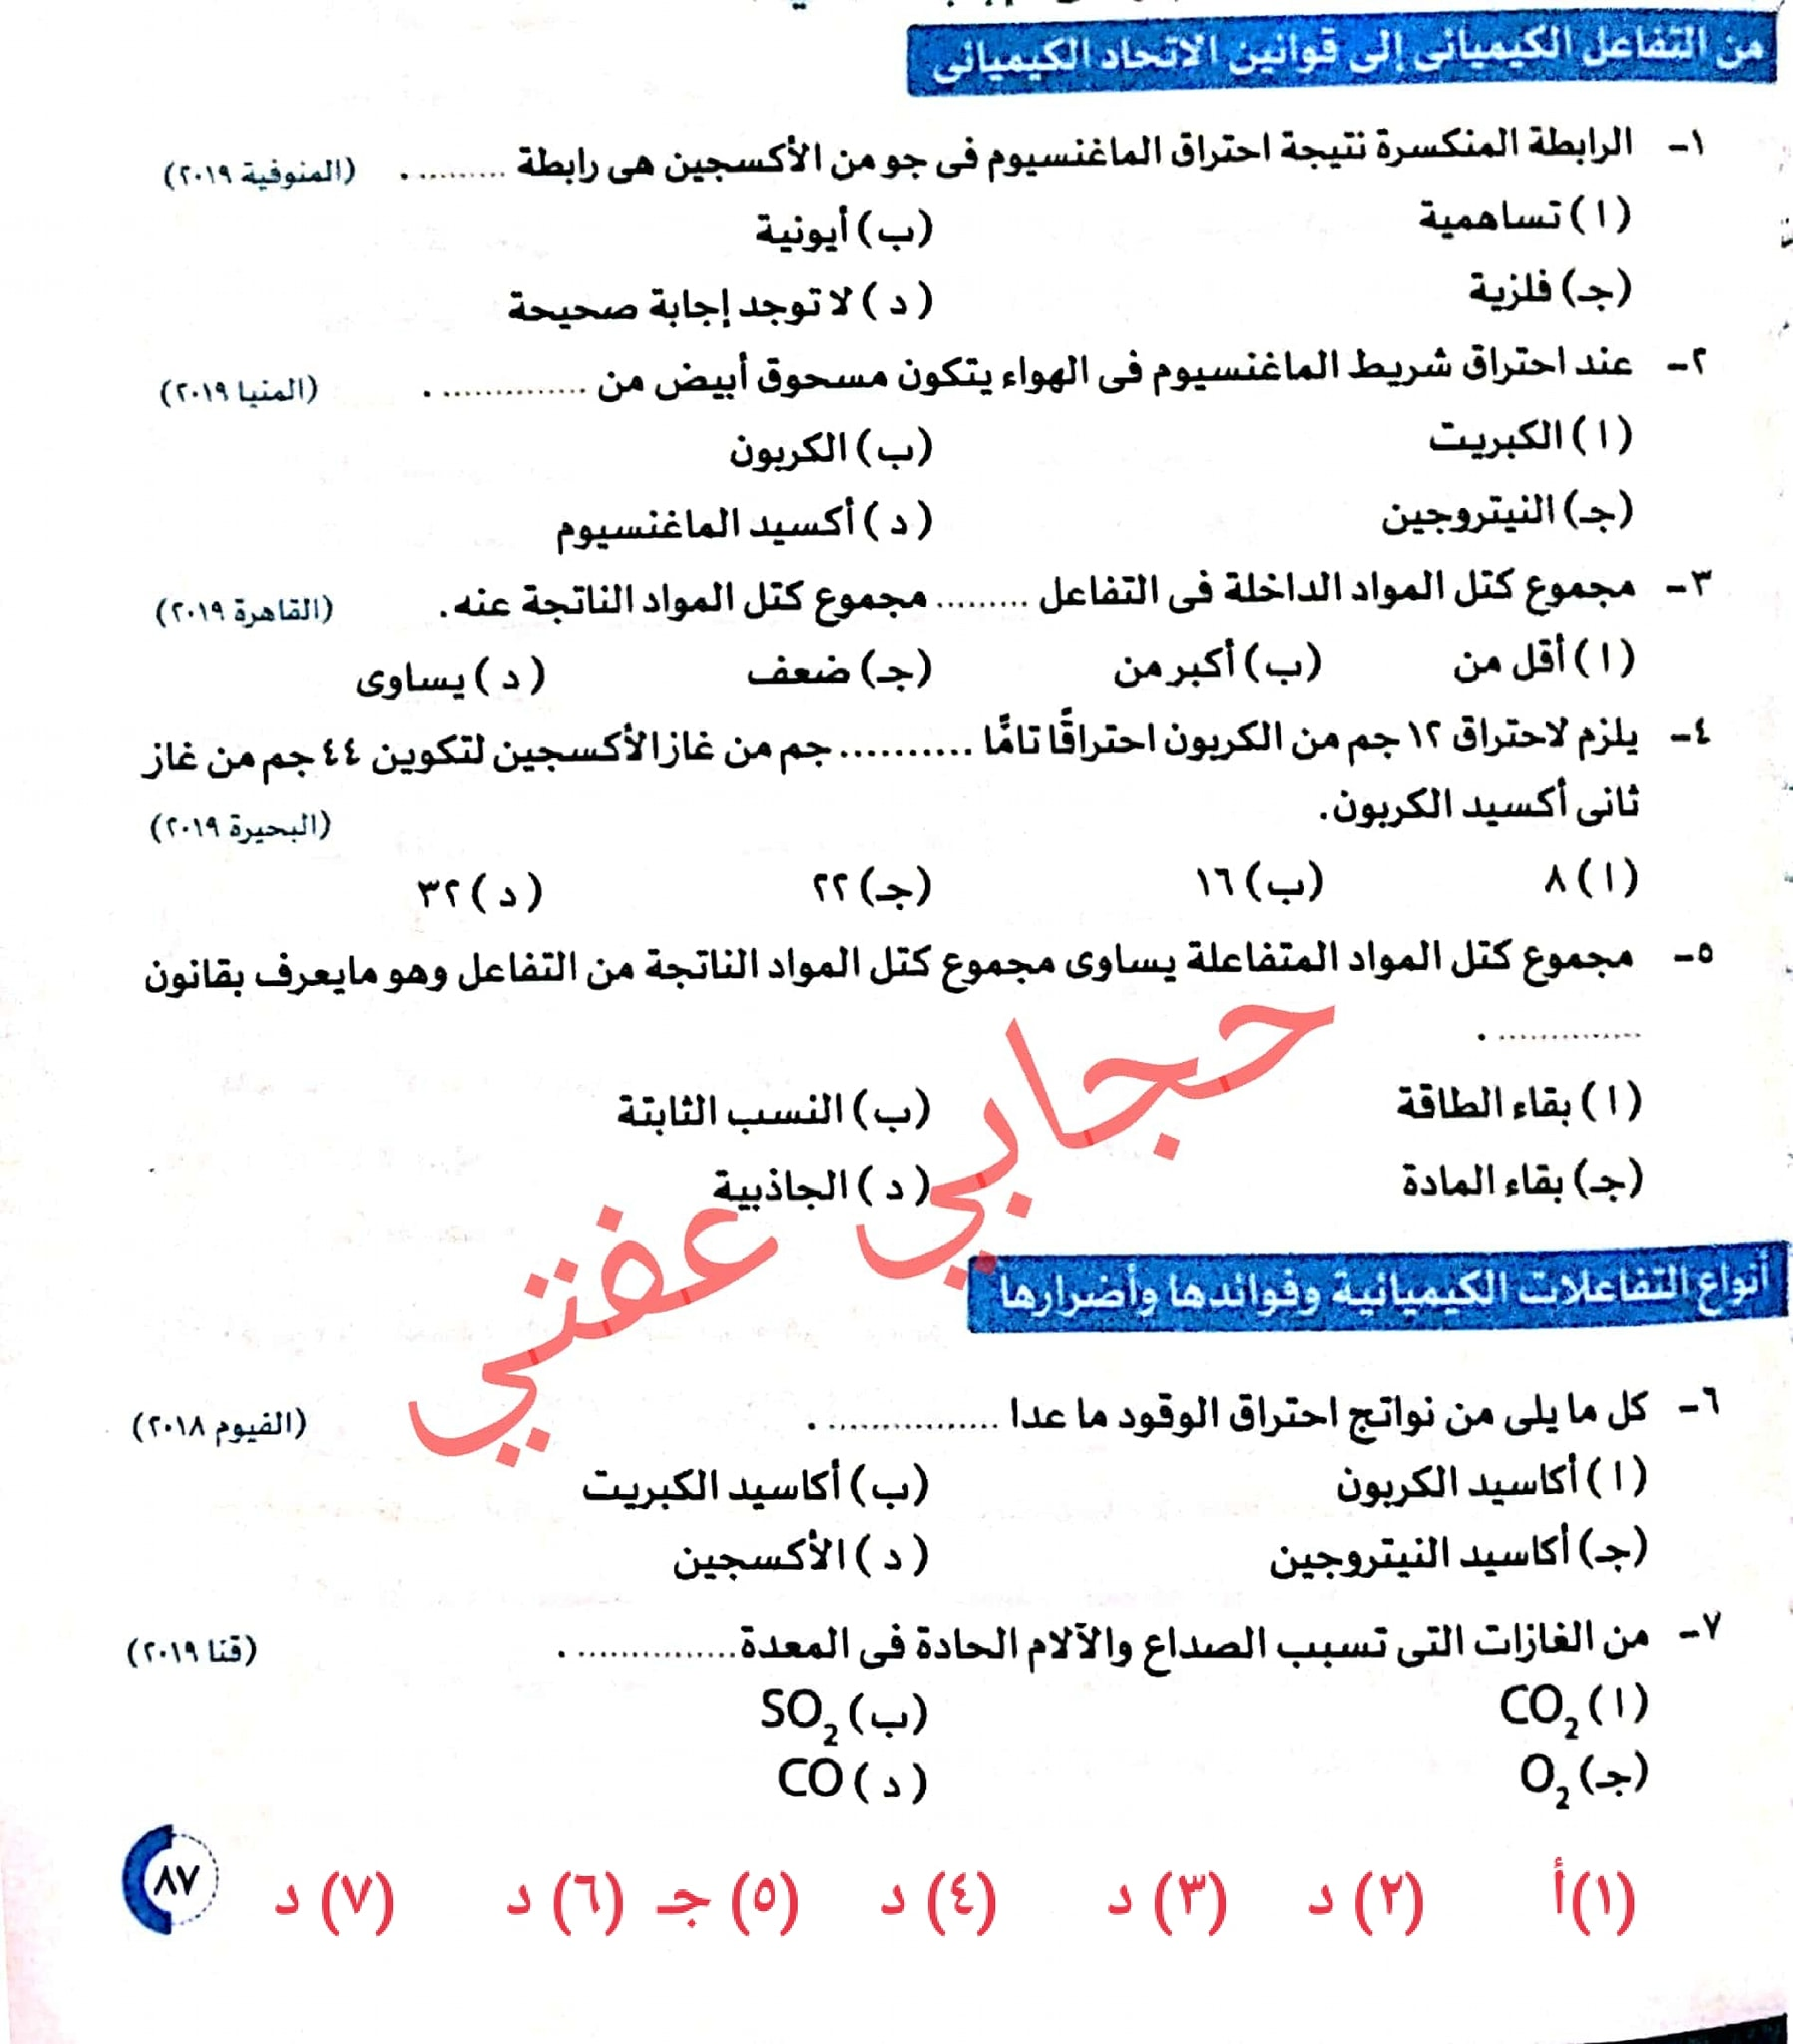 من التفاعل الكيميائى إلى قوانين الاتحاد الكيميائى
١- الرابطة المنكسرة نتيجة احتراق الماغنسيوم فى جو من الأكسجين هى رابطة .......... . (المنوفية ٢٠١٩)
(ا) تساهمية (ب) أيونية
(جـ) فلزية (د) لا توجد إجابة صحيحة
٢- عند احتراق شريط الماغنسيوم فى الهواء يتكون مسحوق أبيض من .............. . (المنيا ٢٠١٩)
(ا) الكبريت (ب) الكربون
(جـ) النيتروجين (د) أكسيد الماغنسيوم
٣- مجموع كتل المواد الداخلة فى التفاعل ......... مجموع كتل المواد الناتجة عنه. (القاهرة ٢٠١٩)
(ا) أقل من (ب) أكبر من (جـ) ضعف (د) يساوى
٤- يلزم لاحتراق ١٢ جم من الكربون احتراقًا تامًّا .......... جم من غاز الأكسجين لتكوين ٤٤ جم من غاز
ثانى أكسيد الكربون. (البحيرة ٢٠١٩)
(ا) ٨ (ب) ١٦ (جـ) ٢٢ (د) ٣٢
٥- مجموع كتل المواد المتفاعلة يساوى مجموع كتل المواد الناتجة من التفاعل وهو مايعرف بقانون
.............. .
(ا) بقاء الطاقة (ب) النسب الثابتة
(جـ) بقاء المادة (د) الجاذبية
حجابي عفتي
أنواع التفاعلات الكيميائية وفوائدها وأضرارها
٦- كل ما يلى من نواتج احتراق الوقود ما عدا ................ . (الفيوم ٢٠١٨)
(ا) أكاسيد الكربون (ب) أكاسيد الكبريت
(جـ) أكاسيد النيتروجين (د) الأكسجين
٧- من الغازات التى تسبب الصداع والآلام الحادة فى المعدة............... . (قنا ٢٠١٩)
(ا) CO₂ (ب) SO₂
(جـ) O₂ (د) CO
(١) أ (٢) د (٣) د (٤) د (٥) جـ (٦) د (٧) د
٨٧